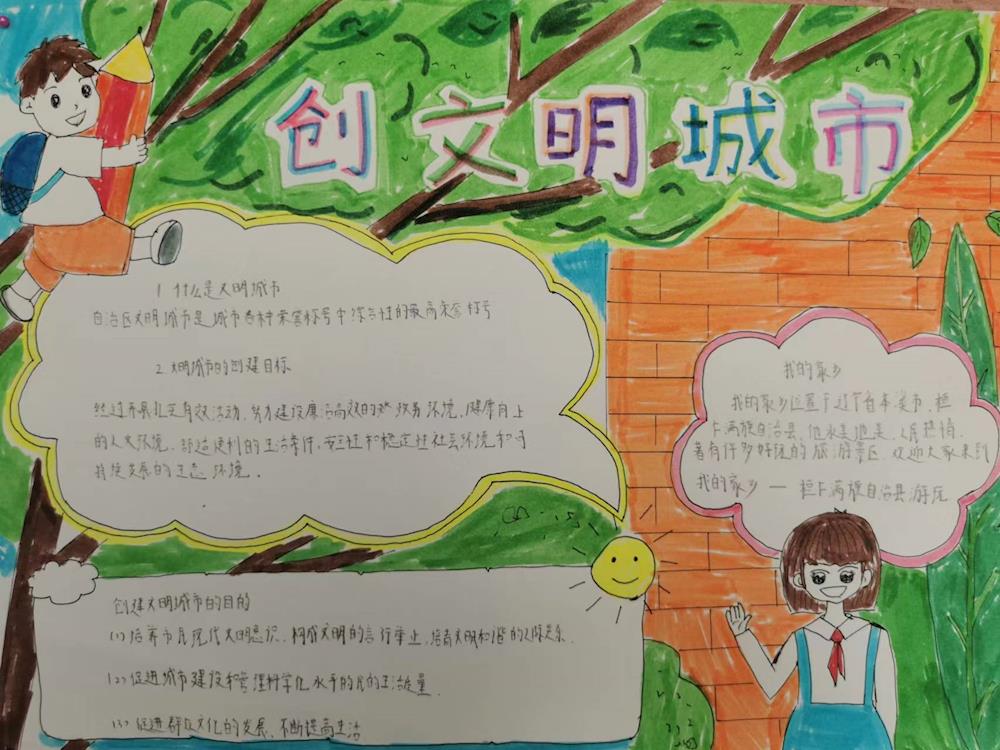 创文明城市
1 什么是文明城市
自治区文明城市是城市各种荣誉称号中综合性的最高荣誉称号
2 文明城市的创建目标
经过开展扎实有效活动,努力建设廉洁高效的政务环境,健康向上
的人文环境,舒适便利的生活条件,安全性和稳定性社会环境和可
持续发展的生态环境.
我的家乡
我的家乡位置于辽宁省本溪市,桓
仁满族自治县,他水美地美,人民热情,
著有许多好玩的旅游景区,欢迎大家来到
我的家乡 — 桓仁满族自治县游玩
创建文明城市的目的
(1)培养市民现代文明意识,构成文明的言行举止,培育文明和谐的人际关系.
(2)促进城市建设和管理科学化水平的民的生活质量.
(3)促进群众文化的发展,不断提高生活